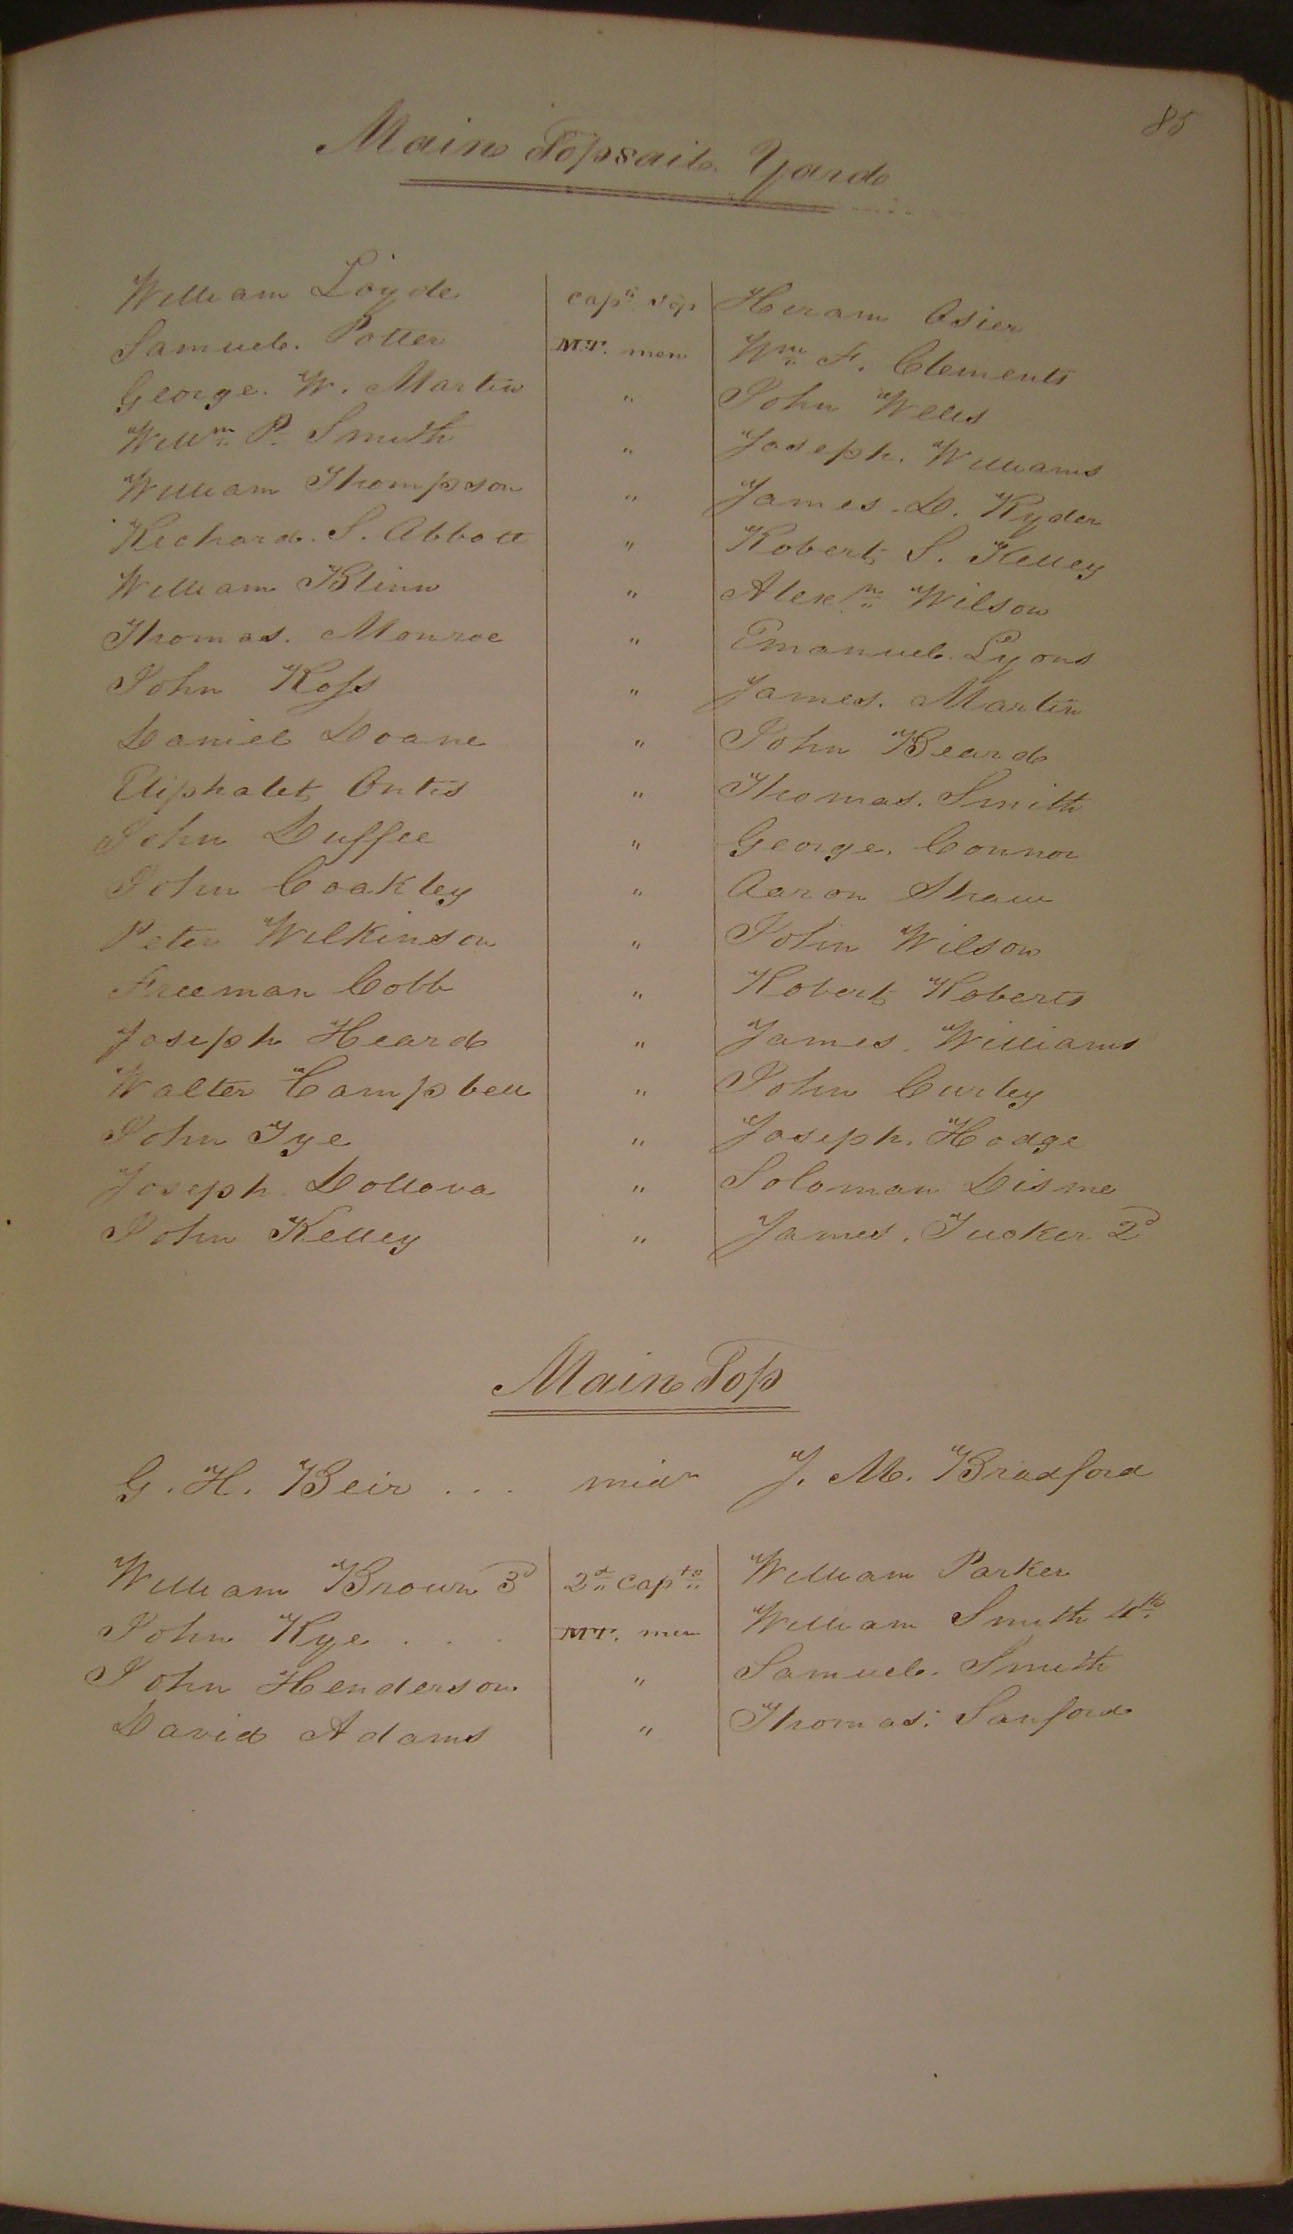 85
Main Topsail Yard
William Loyde capt top Hiram Osier
Samuel Potter M.T. men Wm F. Clements
George W. Martin " John Wells
Willm P. Smith " Joseph Williams
William Thompson " James D. Ryder
Richard S. Abbott " Robert S. Kelley
William Blinn " Alexr Wilson
Thomas Monroe " Emanuel Lyons
John Ross " James Martin
Daniel Doane " John Beard
Eliphalet Ontis " Thomas Smith
John Duffee " George Connor
John Coakley " Aaron Shaw
Peter Wilkinson " John Wilson
Freeman Cobb " Robert Roberts
Joseph Heard " James Williams
Walter Campbell " John Curley
John Tye " Joseph Hodge
Joseph Dollova " Soloman Disme
John Kelley " James Tucker 2d
Main Top
G. H. Beir . . . midn J. M. Bradford
William Brown 3d 2d capts William Parker
John Rye . . . M.T. men William Smith 4th
John Henderson " Samuel Smith
David Adams " Thomas Sanford